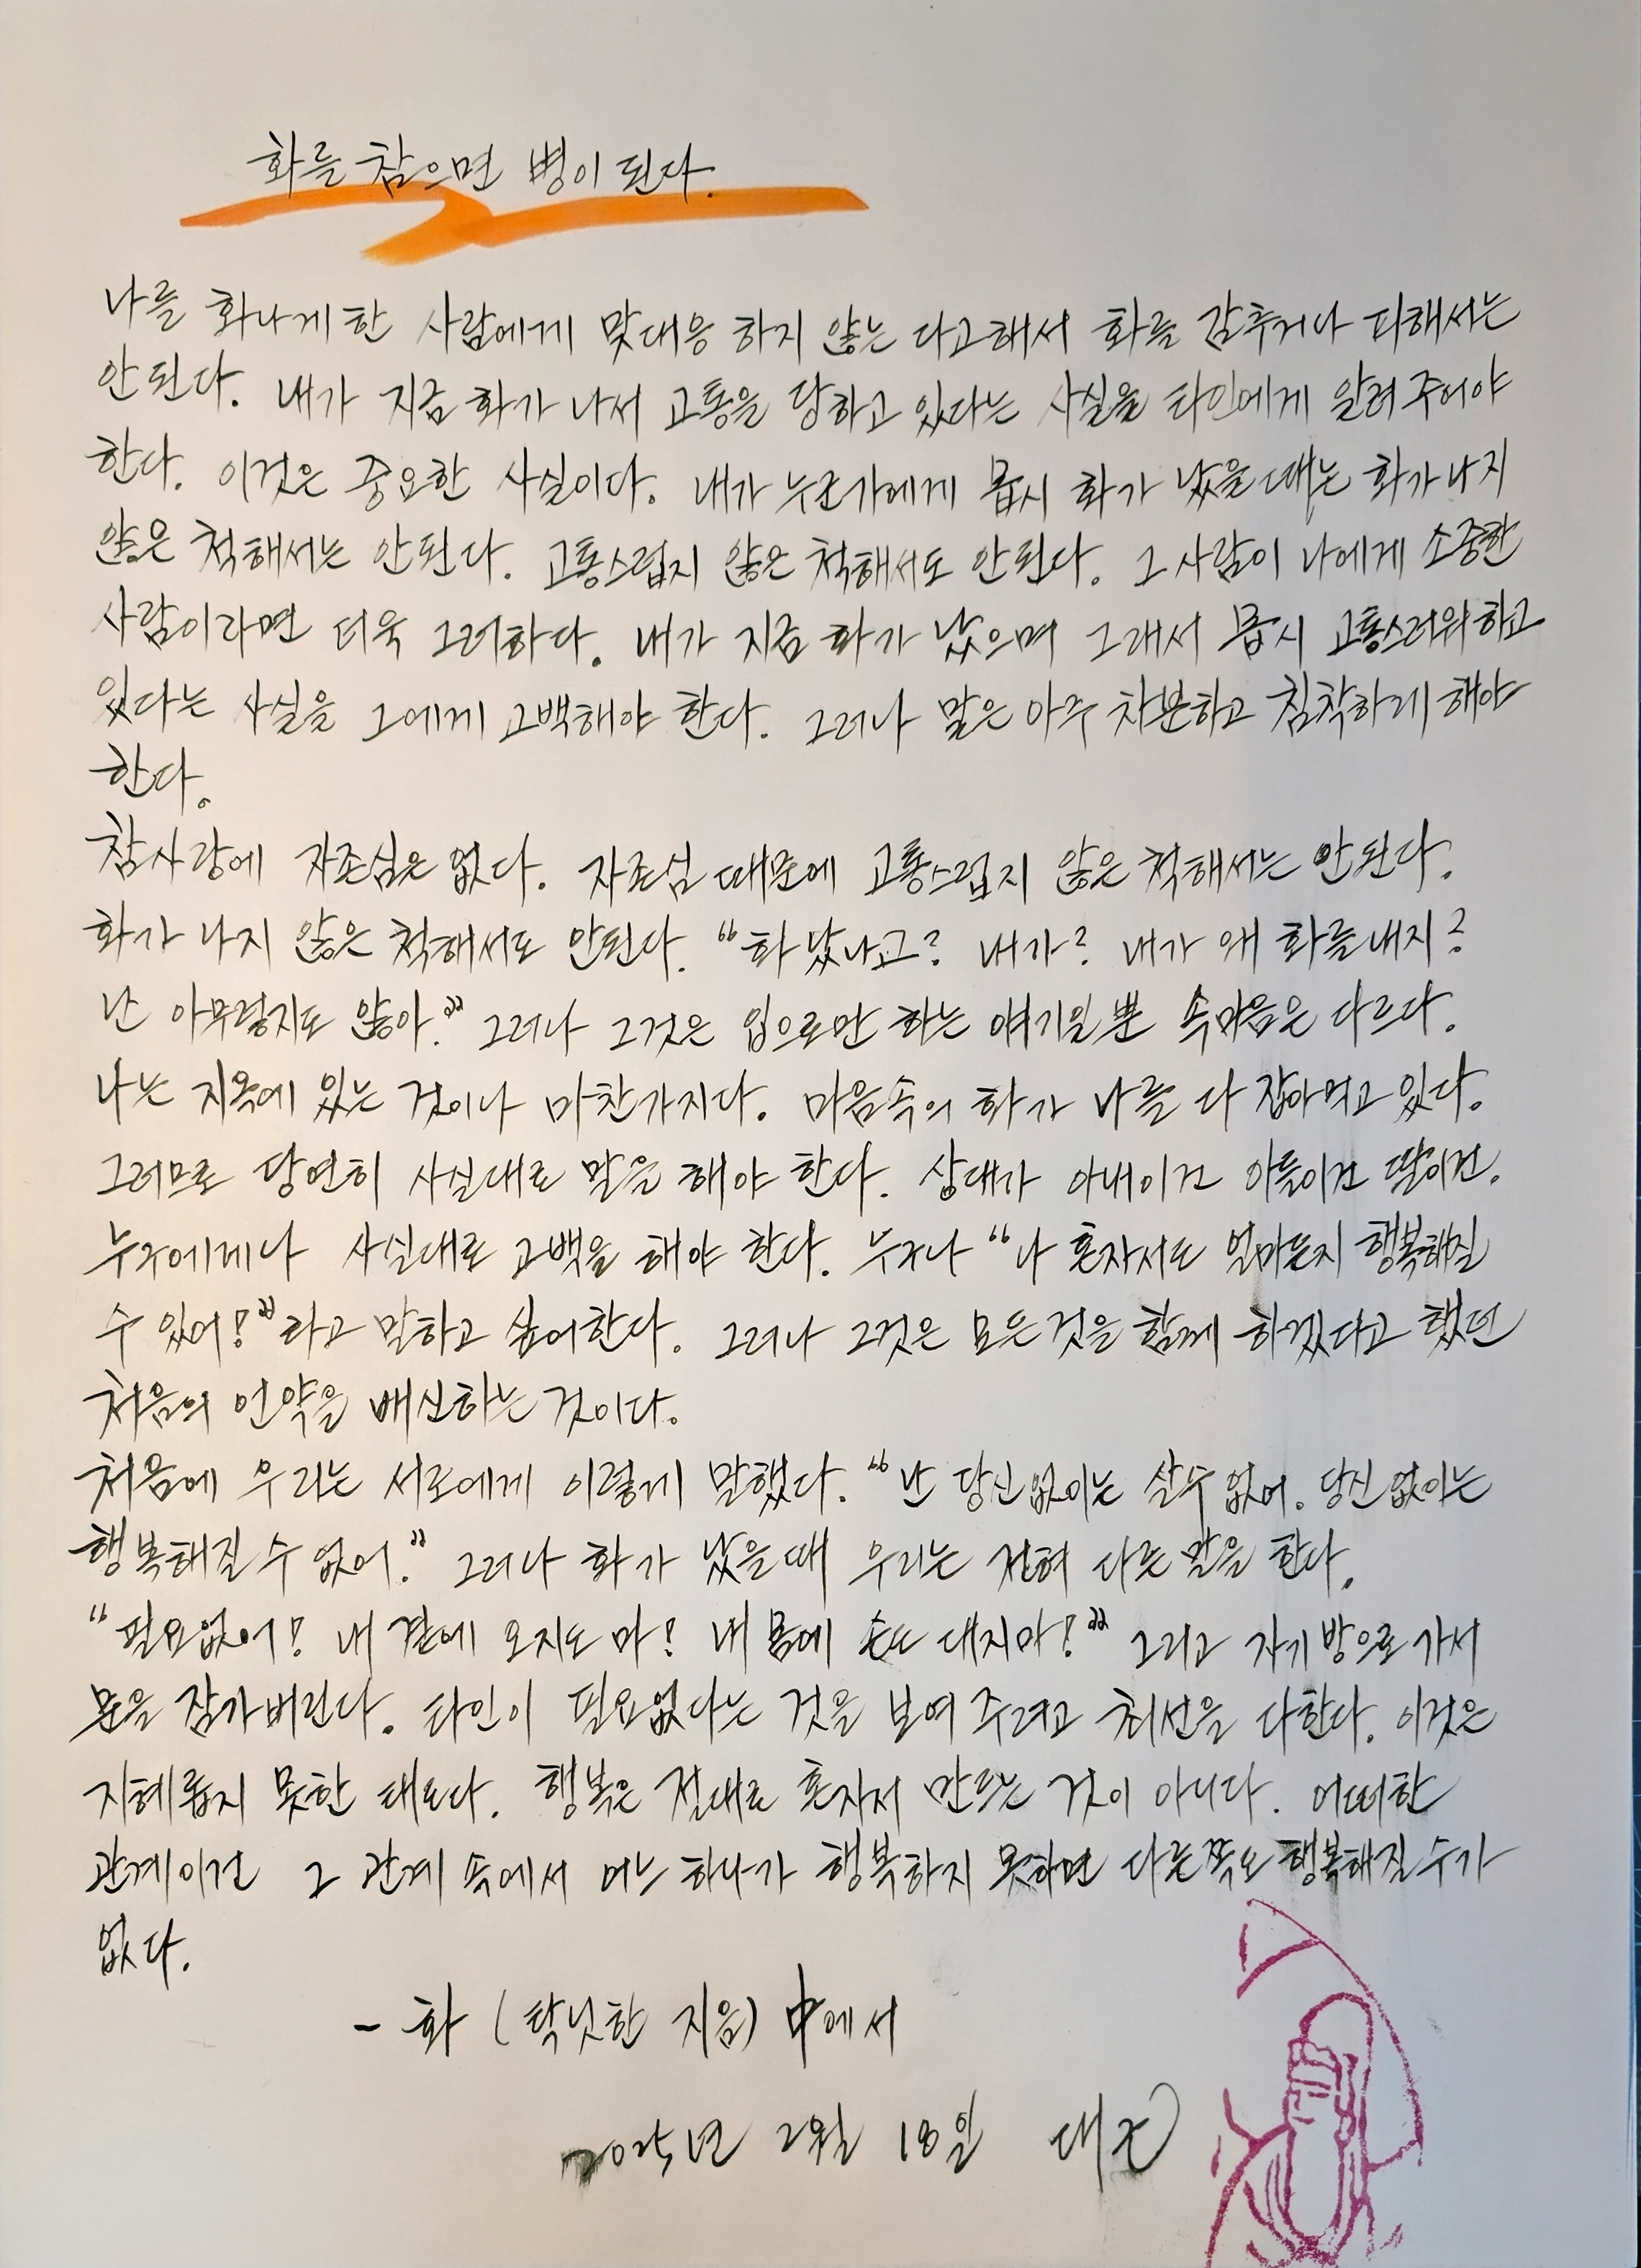 화를 참으면 병이 된다.
나를 화나게 한 사람에게 맞대응 하지 않는 다고해서 화를 감추거나 피해서는
안된다. 내가 지금 화가 나서 고통을 당하고 있다는 사실을 타인에게 알려 주어야
한다. 이것은 중요한 사실이다. 내가 누군가에게 몹시 화가 났을 때는 화가 나지
않은 척해서는 안된다. 고통스럽지 않은 척해서도 안된다. 그 사람이 나에게 소중한
사람이라면 더욱 그러하다. 내가 지금 화가 났으며 그래서 몹시 고통스러워하고
있다는 사실을 그에게 고백해야 한다. 그러나 말은 아주 차분하고 침착하게 해야
한다.
참사랑에 자존심은 없다. 자존심 때문에 고통스럽지 않은 척해서는 안된다.
화가 나지 않은 척해서도 안된다. “화 났냐고? 내가? 내가 왜 화를 내지?
난 아무렇지도 않아.” 그러나 그것은 입으로만 하는 얘기일 뿐 속마음은 다르다.
나는 지옥에 있는 것이나 마찬가지다. 마음속의 화가 나를 다 잡아먹고 있다.
그러므로 당연히 사실대로 말을 해야 한다. 상대가 아내이건 아들이건 딸이건.
누구에게나 사실대로 고백을 해야 한다. 누구나 “나 혼자서도 얼마든지 행복해질
수 있어!”라고 말하고 싶어한다. 그러나 그것은 모든 것을 함께 하겠다고 했던
처음의 언약을 배신하는 것이다.
처음에 우리는 서로에게 이렇게 말했다. “난 당신없이는 살수 없어. 당신 없이는
행복해질 수 없어.” 그러나 화가 났을때 우리는 전혀 다른 말을 한다.
“필요없어! 내 곁에 오지도 마! 내 몸에 손도 대지마!” 그리고 자기 방으로 가서
문을 잠가버린다. 타인이 필요없다는 것을 보여 주려고 최선을 다한다. 이것은
지혜롭지 못한 태도다. 행복은 절대로 혼자서 만드는 것이 아니다. 어떠한
관계이건 그 관계 속에서 어느 하나가 행복하지 못하면 다른쪽도 행복해질 수가
없다.
- 화 (탁닛한 지음) 中에서
2025년 2월 18일